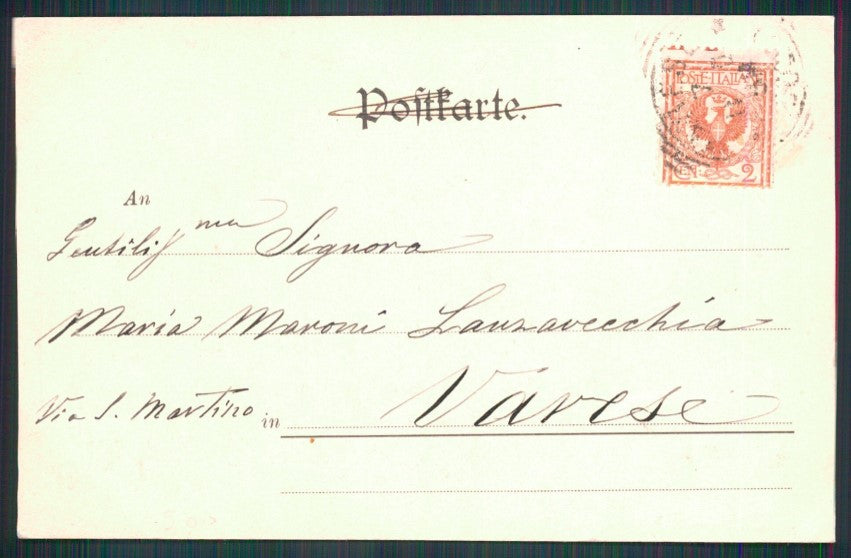 Postkarte.
POSTE ITALIANE
CEN. 2
An
Gentiliss ma Signora
Maria Maroni Lanzavecchia
Via S. Martino in Varese